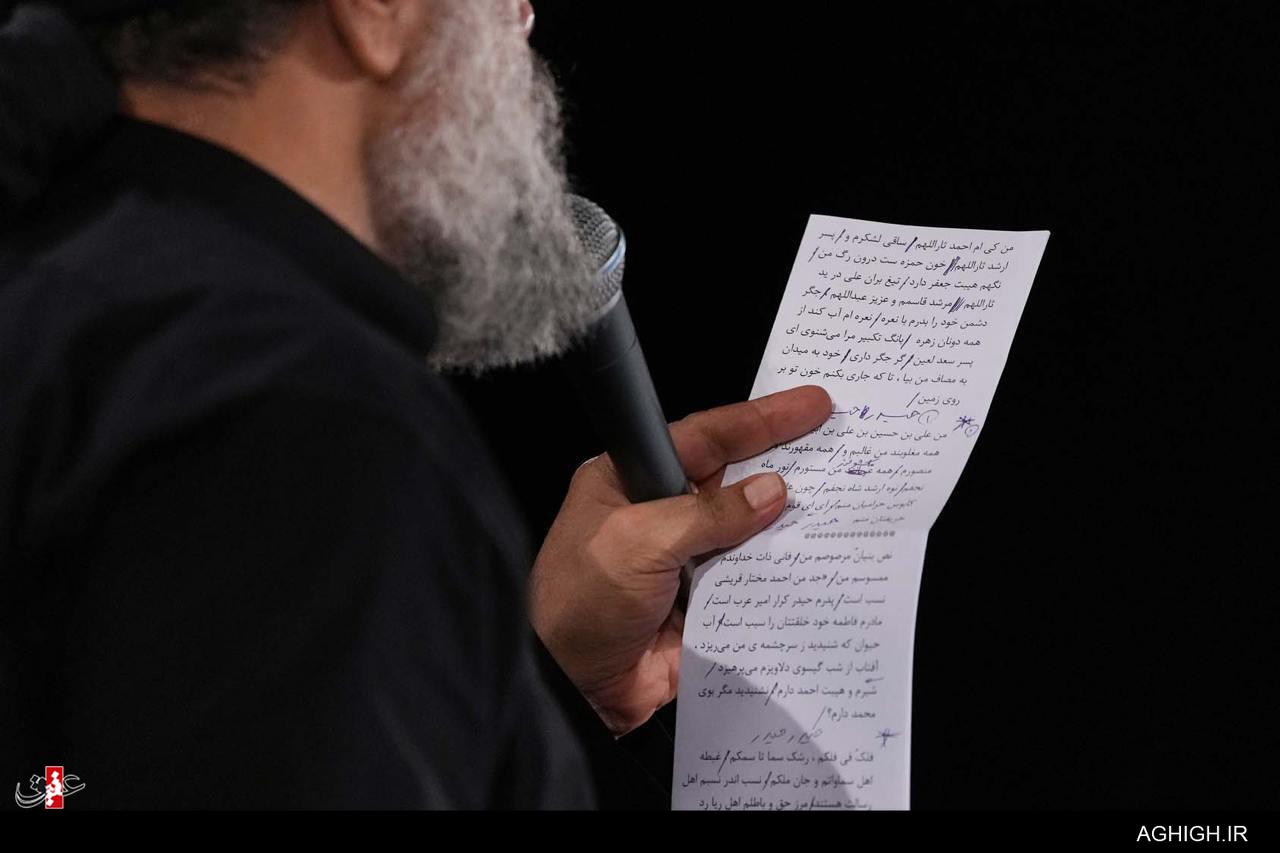 من کی ام احمد ثاراللهم/ ساقی لشکرم و/ پسر
ارشد ثاراللهم// خون حمزه ست درون رگ من/
نگهم هیبت جعفر دارد/ تیغ بران علی در ید
ثاراللهم/// مرشد قاسمم و عزیز عبداللهم/ جگر
دشمن خود را بدرم با نعره/ نعره ام آب کند از
همه دونان زهره / بانگ تکبیر مرا می‌شنوی ای
پسر سعد لعین/ گر جگر داری/ خود به میدان
به مصاف من بیا ، تا که جاری بکنم خون تو بر
روی زمین/
۱
من علی بن حسین بن علی بن
همه مغلوبند من غالبم و/ همه مقهورند
منصورم/ همه من مستورم/ نور ماه
نجفم/ نوه ارشد شاه نجفم/ چون
کابوس حرامیان منم/ ای ای قوم
حریفتان منم حیدر
نص بنیانُ مرصوصم من/ فانی ذات خداوندم
ممسوسم من/ «جد من احمد مختار قریشی
نسب است/ پدرم حیدر کرار امیر عرب است/
مادرم فاطمه خود خلقتتان را سبب است/ آب
حیوان که شنیدید ز سرچشمه ی من می‌ریزد ،
آفتاب از شب گیسوی دلاویزم می‌پرهیزد/
شیرم و هیبت احمد دارم/ نشنیدید مگر بوی
محمد دارم؟/
حیدر حیدر
فلکُ فی فلکم ، رشک سما تا سمکم/ غبطه
اهل سماواتم و جان ملکم/ نسب اندر نسبم اهل
رسالت هستند/ مرز حق و باطلم اهل ریا رد
عقیق
AGHIGH.IR